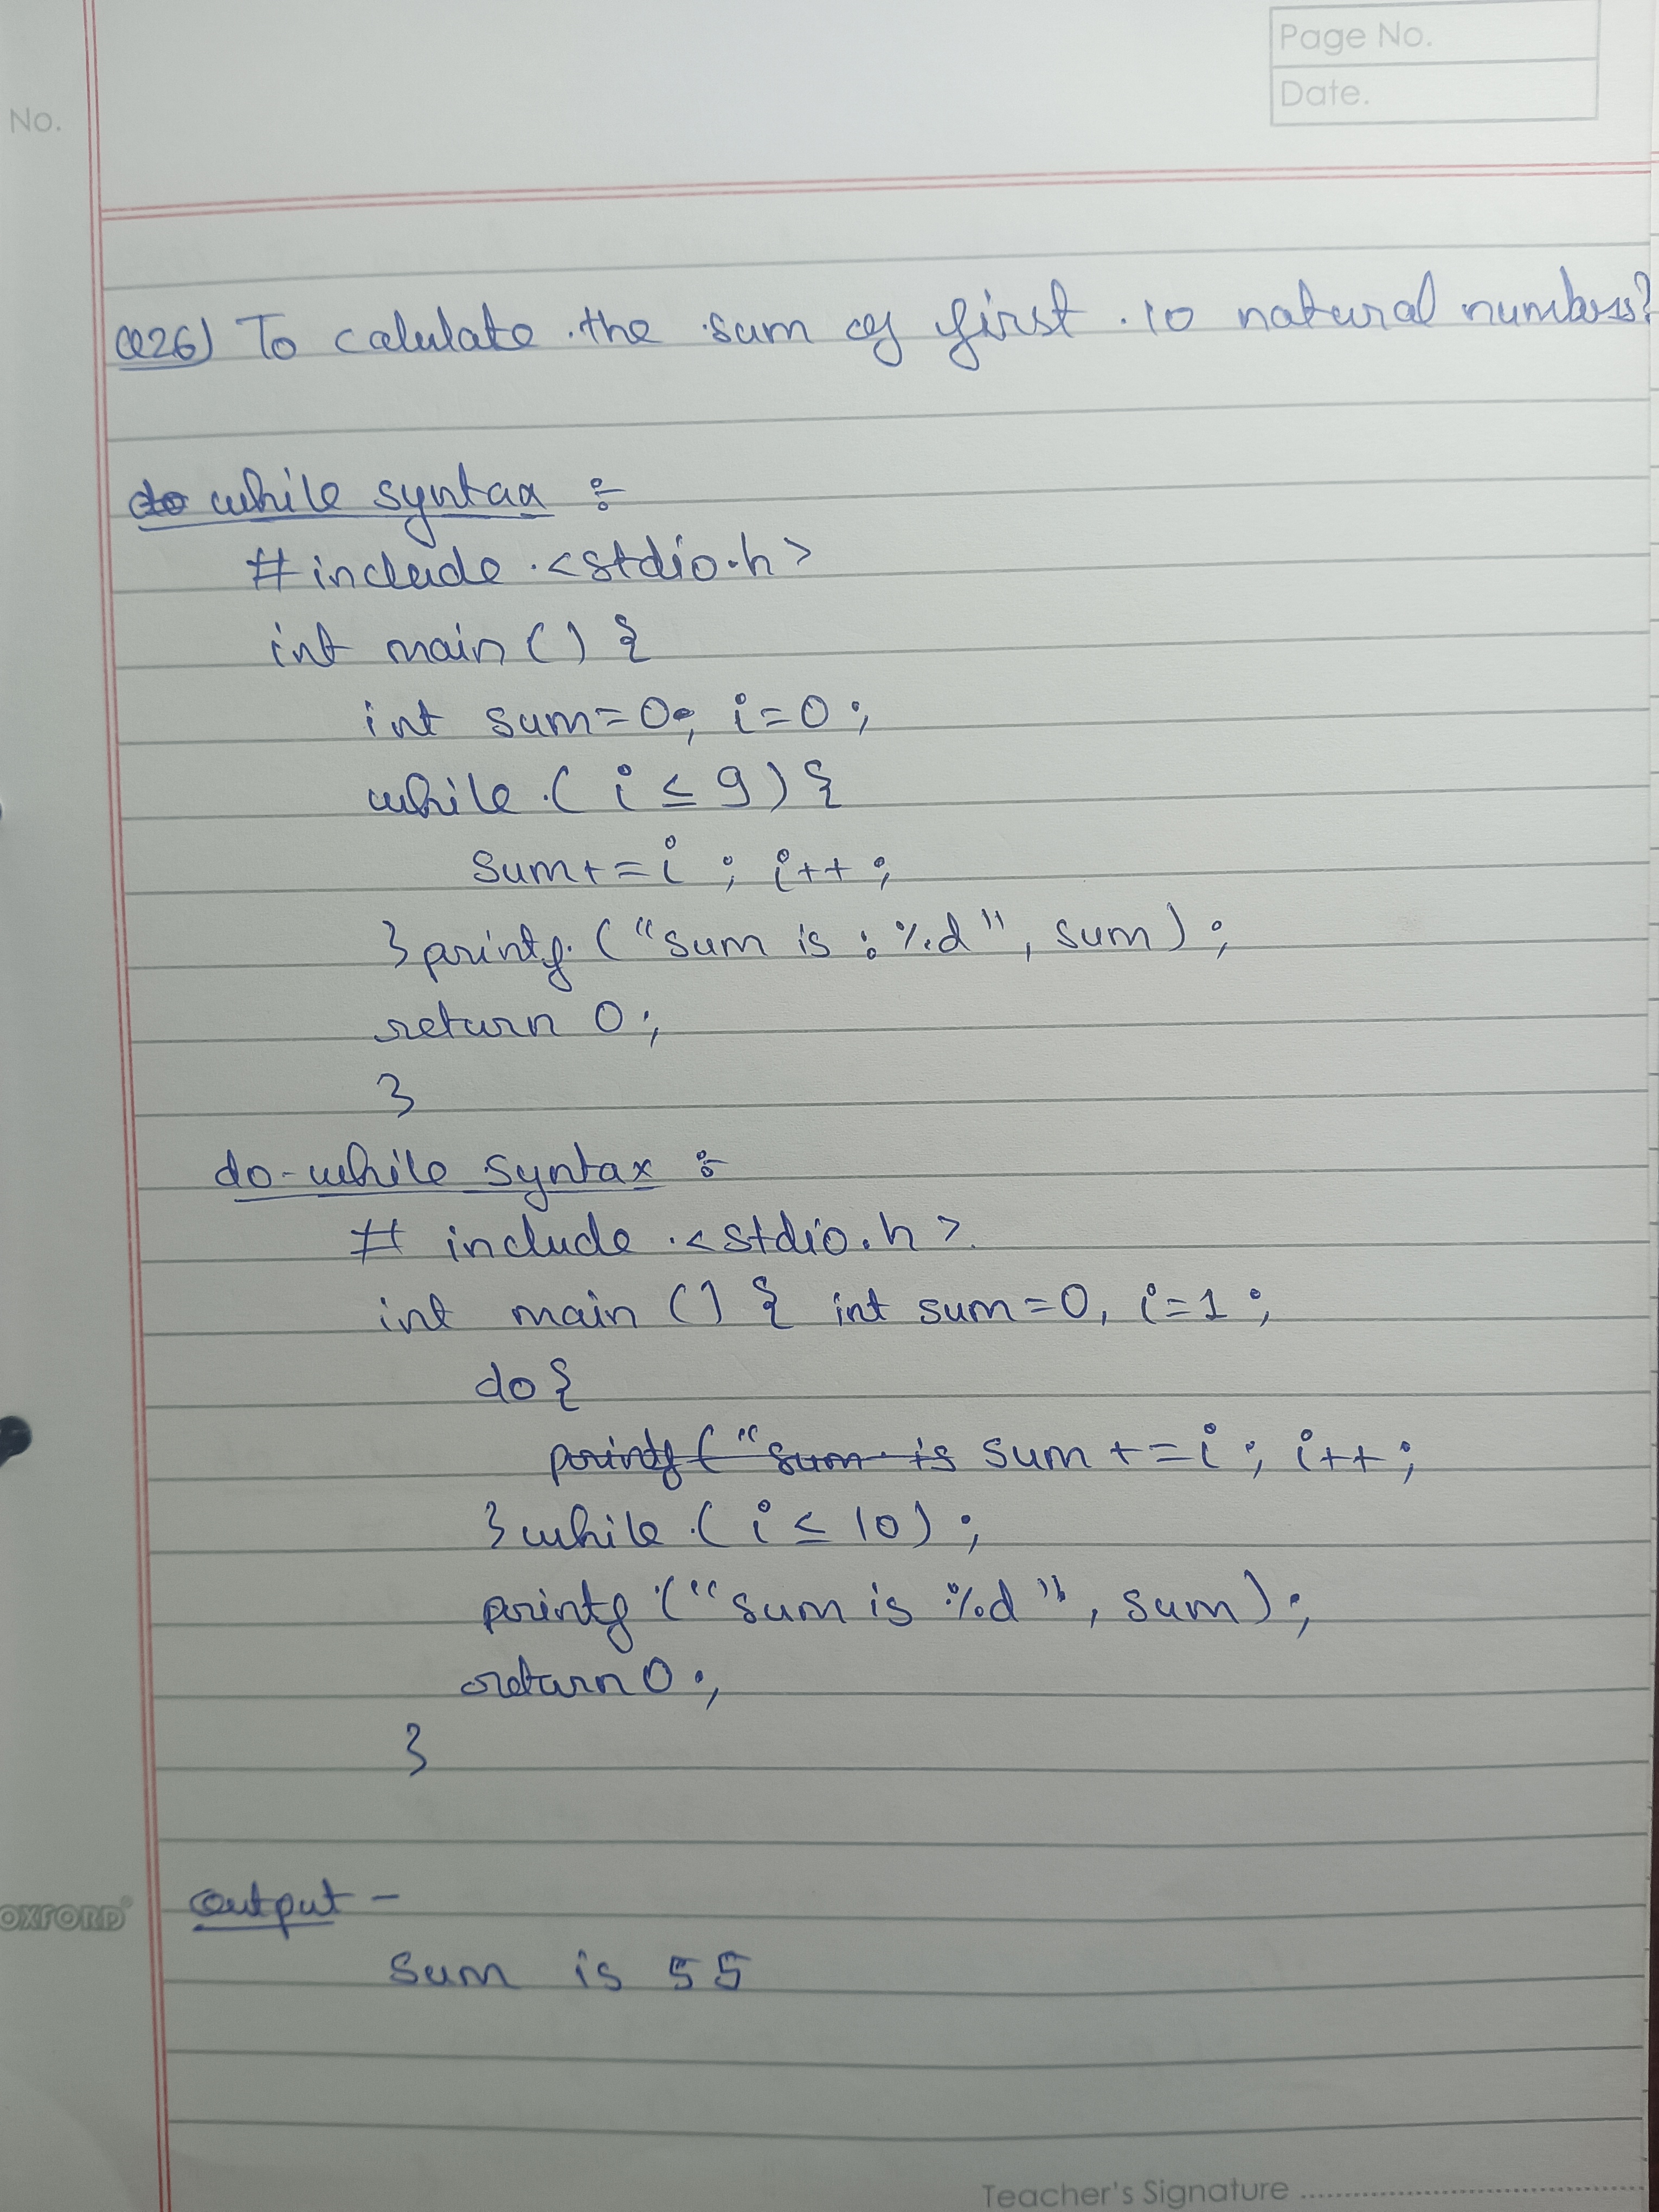 Page No.
Date.
No.
Q26) To calulate the sum of first 10 natural numbers?
do while syntax :-
#include <stdio.h>
int main () {
int sum=0; i=0;
while ( i ≤ 9) {
sum+=i ; i++ ;
} printf ("sum is : %d", sum) ;
return 0;
}
do-while syntax :-
# include <stdio.h>
int main () { int sum=0, i=1 ;
do {
printf ( "sum is sum +=i ; i++ ;
} while ( i ≤ 10) ;
printf ("sum is %d", sum) ;
return 0 ;
}
OXFORD
output -
sum is 55
Teacher's Signature ........................